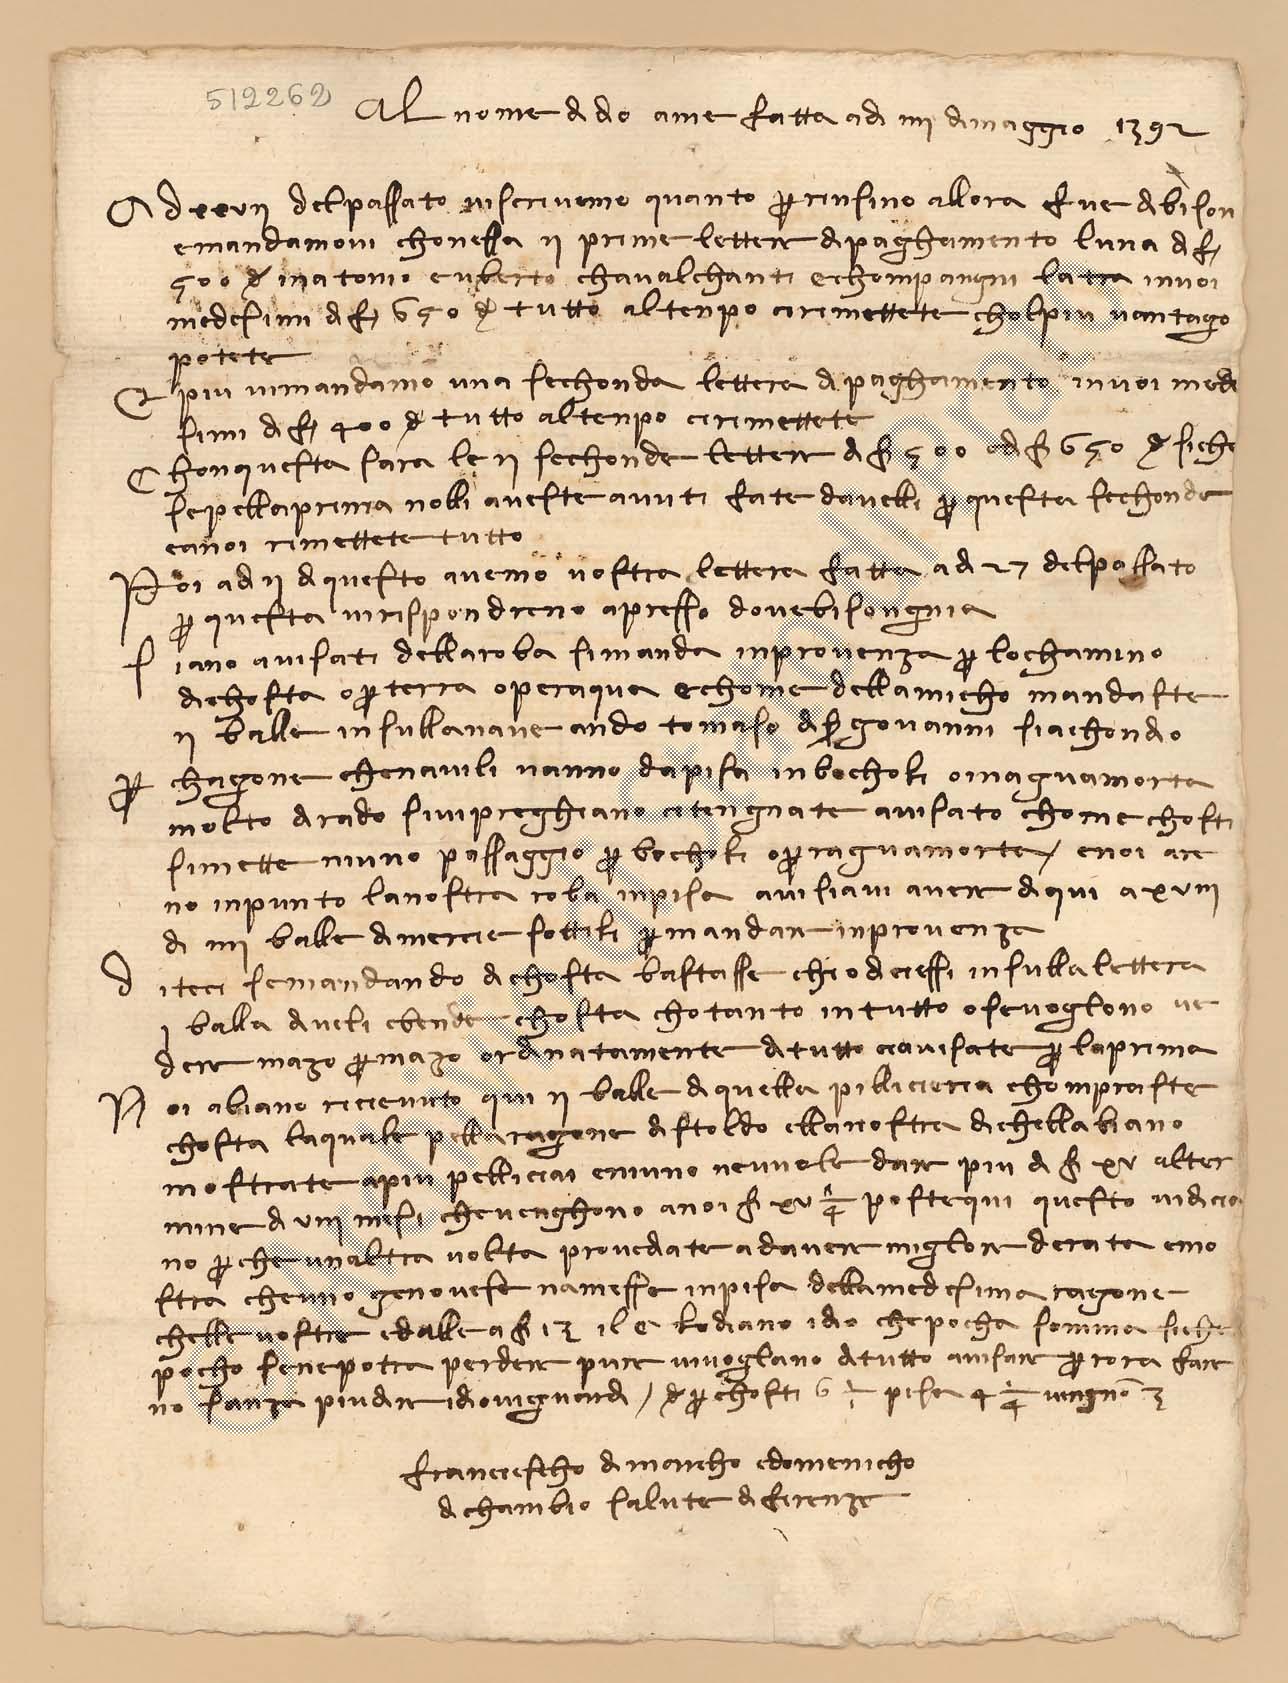 512262
Al nome di dio ame fatta adi iiii di maggio 1392
Ad xxvii del passato vi scrivemo quanto per insino allora fue di bison
e mandamovi chonessa ii prime lettere di paghamento luna di f.
500 da matomo e uberto chavalchanti e chompangni latra in voi
medesimi di f. 650 di tutto al tenpo ci rimettete chol piu vantago
potete
E piu vi mandamo una sechonda lettera di paghamento in voi mede
simi di f. 400 di tutto al tenpo ci rimettete
Chon questa sara le ii sechonde lettere di f. 500 e di f. 650 siche
se pella prima nolli aveste avuti fate davelli per questa sechonde
e a noi rimettete tutto
Poi ad ii di questo avemo vostra lettera fatta a di 27 del passato
per questa vi rispondreno apresso dove bisongnia
Siano avisati della roba si manda in provenza per lo chamino
di chosta o per terra o per aqua e chome dellamicho mandaste
ii balle in sulla nave ando tomaso di ser govanni sia chondio
Per chagone che navili vanno da pisa in bocholi o in aguamorta
molto di rado si vi preghiano ci tengnate avisato chome chosti
si mette niuno passaggio per bocholi o per aguamorte / e noi are
no in punto la nostra roba in pisa avisiavi avere di qui a xviii
di iiii balle di mercie sottili per mandare in provenza
Diteci se mandando di chosta bastasse chio dicessi in sulla lettera
i balla di veli chende chosta chotanto in tutto o se voglono ve
dere mazo per mazo ordinatamente di tutto ci avisate per la prima
Noi abiano ricievuto qui ii balle di quella pillicieria chompraste
chosta la quale pella ragone di stoldo ella nostra di chella biano
mostrate a piu pelliciai e niuno ne vuole dare piu di f. xv al ter
mine di viii mesi che venghono a noi f. xv 1/4 poste qui questo vi dicia
no per che unaltra volta provediate ad avere miglor derata e mo
stra che uno genovese namesse in pisa della medesima ragone
chelle vostre e dalle a f. 13 il c lodiano idio che pocha somma siche
pocho se ne potra perdere pure vi voglano di tutto avisare per cora fare
no sanza piu dire idio vi guardi / per chosti 6 pisa 4 1/4 vinegno 3
francescho di marcho e domenicho
di chambio salute di firenze